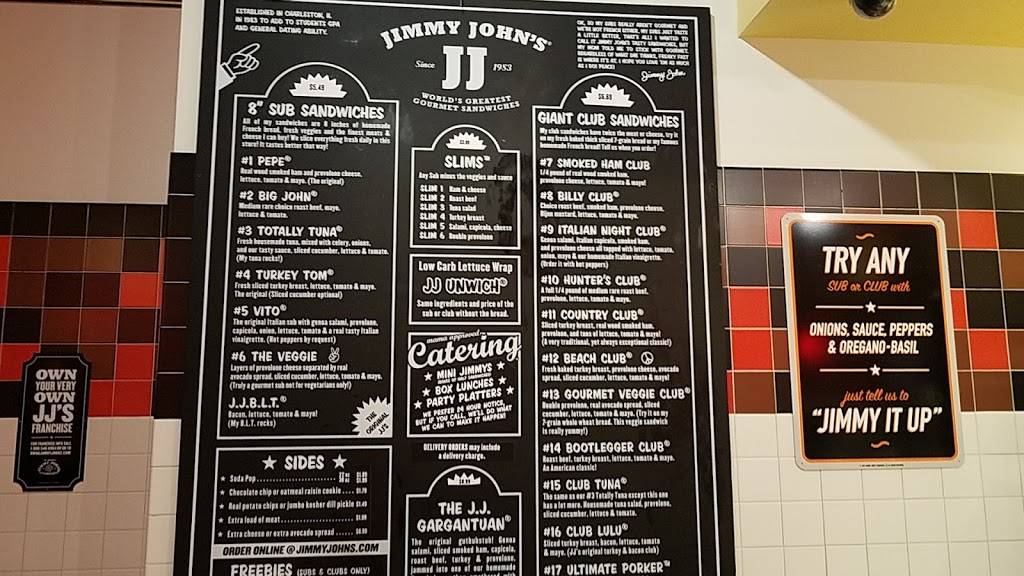 ESTABLISHED IN CHARLESTON, IL
IN 1983 TO ADD TO STUDENTS GPA
AND GENERAL DATING ABILITY.
JIMMY JOHN'S®
Since JJ 1983
WORLD'S GREATEST
GOURMET SANDWICHES
OK, SO MY SUBS REALLY AREN'T GOURMET AND
WE'RE NOT FRENCH EITHER. MY SUBS JUST TASTE
A LITTLE BETTER, THAT'S ALL! I WANTED TO
CALL IT JIMMY JOHN'S TASTY SANDWICHES, BUT
MY MOM TOLD ME TO STICK WITH GOURMET.
REGARDLESS OF WHAT SHE THINKS, FREAKY FAST
IS WHERE IT'S AT. I HOPE YOU LOVE 'EM AS MUCH
AS I DO! PEACE!
Jimmy John
$5.49
8" SUB SANDWICHES
All of my sandwiches are 8 inches of homemade
French bread, fresh veggies and the finest meats &
cheese I can buy! We slice everything fresh daily in this
store! It tastes better that way!
#1 PEPE®
Real wood smoked ham and provolone cheese,
lettuce, tomato & mayo. (The original)
#2 BIG JOHN®
Medium rare choice roast beef, mayo,
lettuce & tomato.
#3 TOTALLY TUNA®
Fresh housemade tuna, mixed with celery, onions,
and our tasty sauce, sliced cucumber, lettuce & tomato.
(My tuna rocks!)
#4 TURKEY TOM®
Fresh sliced turkey breast, lettuce, tomato & mayo.
The original (Sliced cucumber optional)
#5 VITO®
The original Italian sub with genoa salami, provolone,
capicola, onion, lettuce, tomato & a real tasty Italian
vinaigrette. (Hot peppers by request)
#6 THE VEGGIE
Layers of provolone cheese separated by real
avocado spread, sliced cucumber, lettuce, tomato & mayo.
(Truly a gourmet sub not for vegetarians only!)
J.J.B.L.T.®
Bacon, lettuce, tomato & mayo!
(My B.L.T. rocks)
THE
ORIGINAL
JJ'S
★ SIDES ★
★ Soda Pop
★ Chocolate chip or oatmeal raisin cookie
★ Real potato chips or jumbo kosher dill pickle
★ Extra load of meat
★ Extra cheese or extra avocado spread
ORDER ONLINE @ JIMMYJOHNS.COM
FREEBIES (SUBS & CLUBS ONLY)
SLIMS™
Any Sub minus the veggies and sauce
SLIM 1 Ham & cheese
SLIM 2 Roast beef
SLIM 3 Tuna salad
SLIM 4 Turkey breast
SLIM 5 Salami, capicola, cheese
SLIM 6 Double provolone
Low Carb Lettuce Wrap
JJ UNWICH®
Same ingredients and price of the
sub or club without the bread.
mama approved
Catering
★ MINI JIMMYS
★ BOX LUNCHES ★
★ PARTY PLATTERS ★
WE PREFER 24 HOUR NOTICE,
BUT IF YOU CALL, WE'LL DO WHAT
WE CAN TO MAKE IT HAPPEN!
DELIVERY ORDERS may include
a delivery charge.
THE J.J.
GARGANTUAN®
The original gutbuster! Genoa
salami, sliced smoked ham, capicola,
roast beef, turkey & provolone,
jammed into one of our homemade
$6.69
GIANT CLUB SANDWICHES
My club sandwiches have twice the meat or cheese, try it
on my fresh baked thick sliced 7-grain bread or my famous
homemade French bread! Tell us when you order!
#7 SMOKED HAM CLUB
1/4 pound of real wood smoked ham,
provolone cheese, lettuce, tomato & mayo!
#8 BILLY CLUB®
Choice roast beef, smoked ham, provolone cheese,
Dijon mustard, lettuce, tomato & mayo.
#9 ITALIAN NIGHT CLUB®
Genoa salami, Italian capicola, smoked ham,
and provolone cheese all topped with lettuce, tomato,
onion, mayo & our homemade Italian vinaigrette.
(Order it with hot peppers)
#10 HUNTER'S CLUB®
A full 1/4 pound of medium rare roast beef,
provolone, lettuce, tomato & mayo.
#11 COUNTRY CLUB®
Sliced turkey breast, real wood smoked ham,
provolone, and tons of lettuce, tomato & mayo!
(A very traditional, yet always exceptional classic!)
#12 BEACH CLUB®
Fresh baked turkey breast, provolone cheese, avocado
spread, sliced cucumber, lettuce, tomato & mayo!
#13 GOURMET VEGGIE CLUB®
Double provolone, real avocado spread, sliced
cucumber, lettuce, tomato & mayo. (Try it on my
7-grain whole wheat bread. This veggie sandwich
is really yummy!)
#14 BOOTLEGGER CLUB®
Roast beef, turkey breast, lettuce, tomato & mayo.
An American classic!
#15 CLUB TUNA®
The same as our #3 Totally Tuna except this one
has a lot more. Housemade tuna salad, provolone,
sliced cucumber, lettuce & tomato.
#16 CLUB LULU®
Sliced turkey breast, bacon, lettuce, tomato
& mayo. (JJ's original turkey & bacon club)
#17 ULTIMATE PORKER™
OWN
YOUR VERY
OWN
JJ'S
FRANCHISE
TRY ANY
SUB or CLUB with
ONIONS, SAUCE, PEPPERS
& OREGANO-BASIL
just tell us to
"JIMMY IT UP"